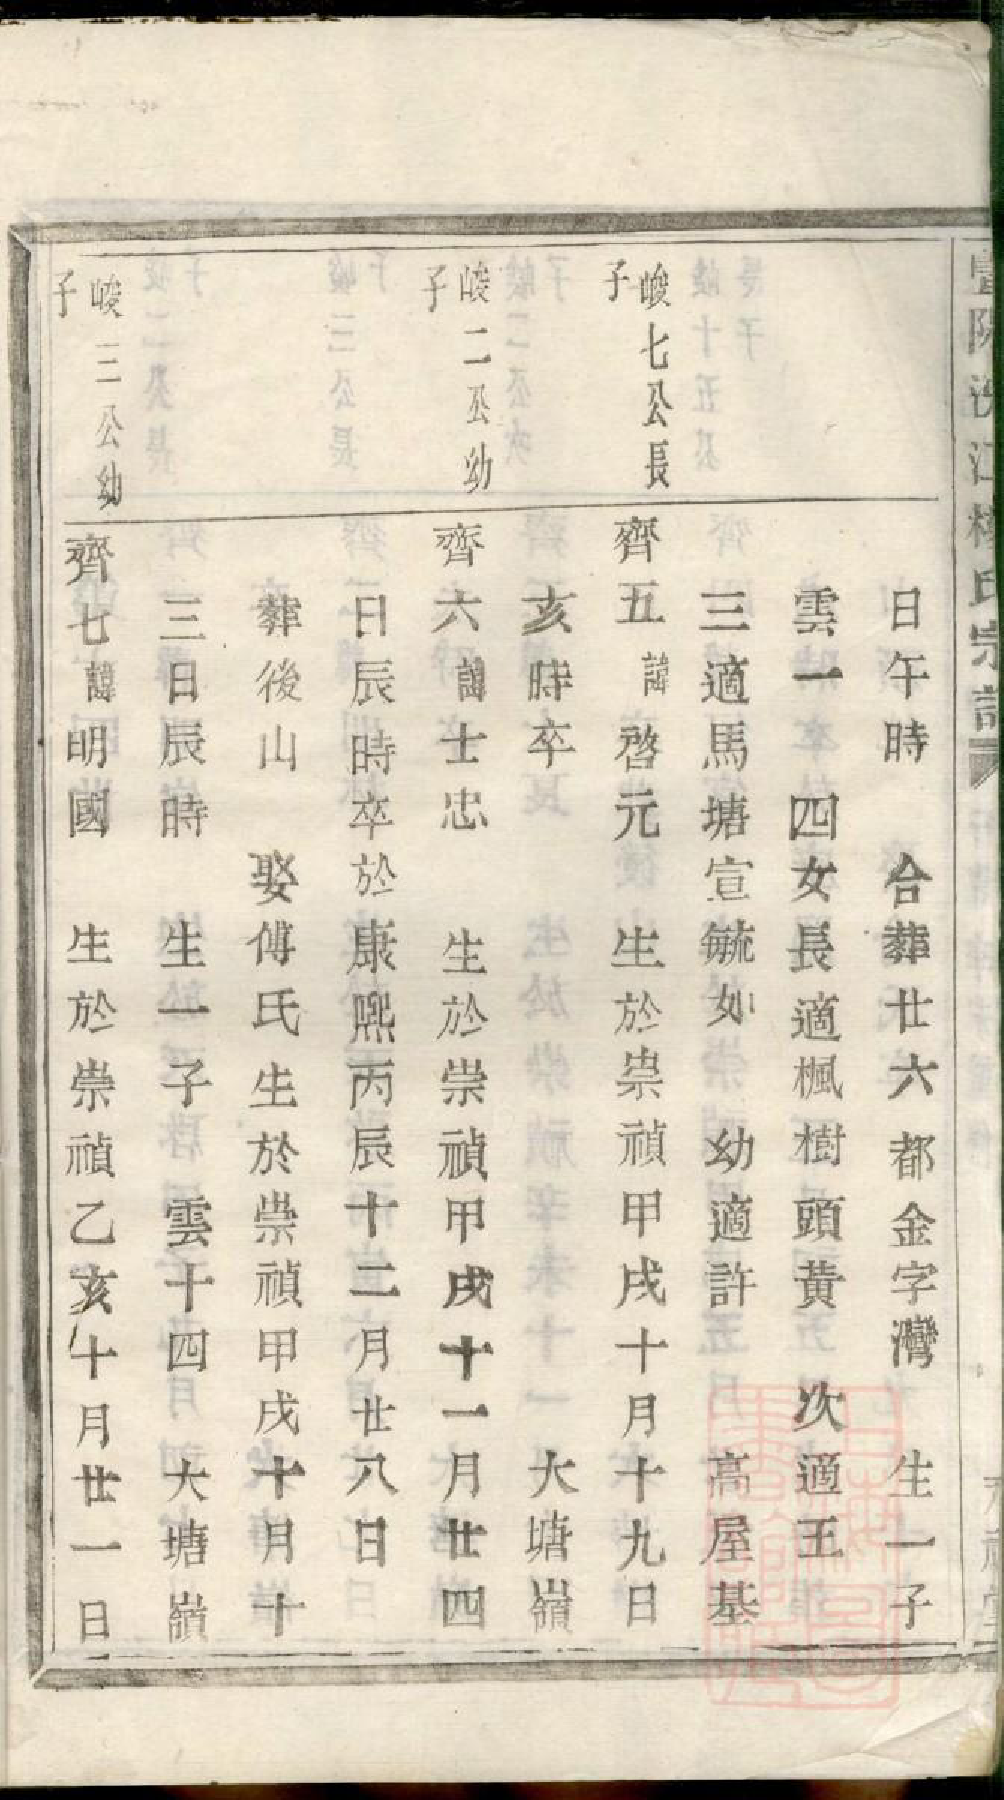 暨陽
江
氏宗譜
日午時　合葬廿六都金字灣　生一子
雲一　四女長適楓樹頭黃　次適王
三適馬塘宣毓如　幼適許　高屋基
峻七公長
子
齊五諱啓元　生於崇禎甲戌十月十九日
亥時卒　大塘嶺
峻二公幼
子
齊六諱士忠　生於崇禎甲戌十一月廿四
日辰時卒於康熙丙辰十二月廿八日
葬後山　娶傅氏生於崇禎甲戌十月十
三日辰時　生一子　雲十四　大塘嶺
峻三公幼
子
齊七諱明國　生於崇禎乙亥十月廿一日